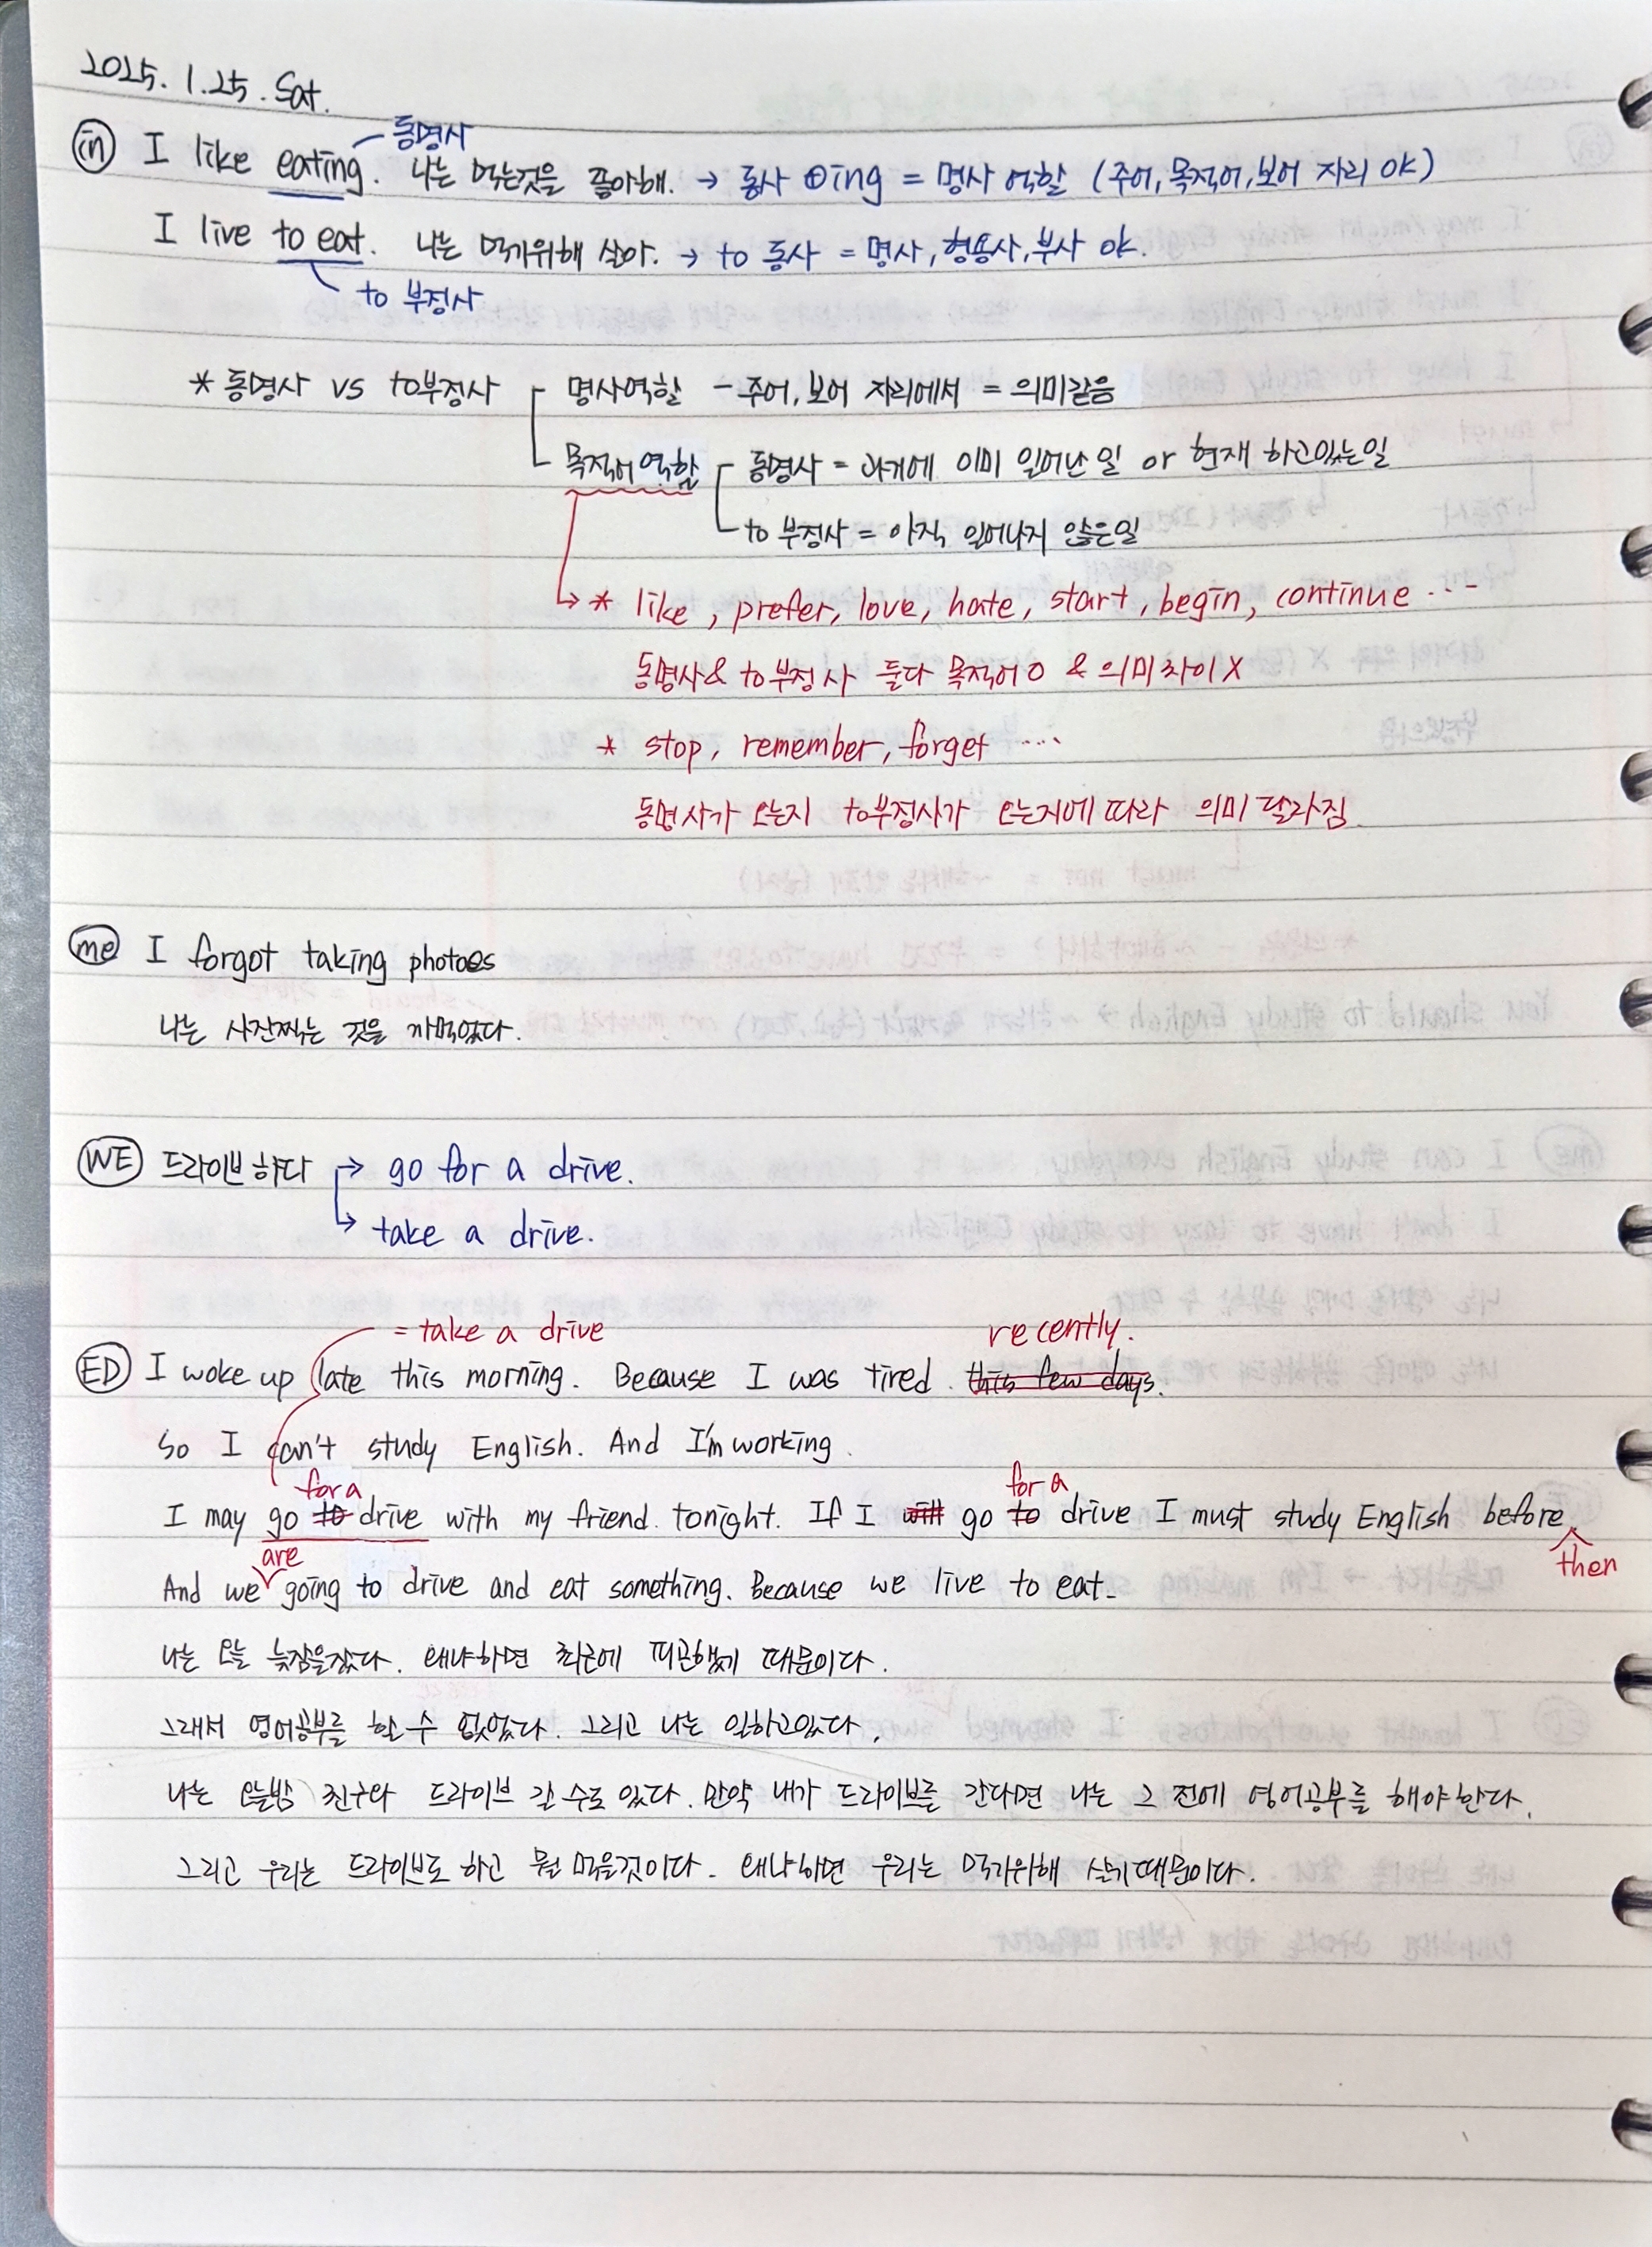 2025. 1. 25. Sat.
동명사
in I like eating. 나는 먹는것을 좋아해. → 동사 ⊕ing = 명사 역할 (주어, 목적어, 보어 자리 OK)
I live to eat. 나는 먹기위해 살아. → to 동사 = 명사, 형용사, 부사 ok.
to 부정사
* 동명사 vs to부정사 명사역할 - 주어, 보어 자리에서 = 의미같음
목적어 역할 동명사 = 과거에 이미 일어난 일 or 현재 하고있는일
to 부정사 = 아직 일어나지 않은일
↳ * like, prefer, love, hate, start, begin, continue ...
동명사 & to부정사 둘다 목적어 O & 의미차이 X
* stop, remember, forget ....
동명사가 오는지 to부정사가 오는지에 따라 의미 달라짐.
me I forgot taking photoes
나는 사진찍는 것을 까먹었다.
WE 드라이브하다 → go for a drive.
↳ take a drive.
= take a drive recently.
ED I woke up late this morning. Because I was tired this few days.
So I can't study English. And I'm working.
for a for a
I may go to drive with my friend tonight. If I will go to drive I must study English before
are then
And we going to drive and eat something. Because we live to eat.
나는 오늘 늦잠을잤다. 왜냐하면 최근에 피곤했기 때문이다.
그래서 영어공부를 할 수 없었다. 그리고 나는 일하고있다.
나는 오늘밤 친구와 드라이브 갈 수도 있다. 만약 내가 드라이브를 간다면 나는 그 전에 영어공부를 해야한다.
그리고 우리는 드라이브도 하고 뭘 먹을것이다. 왜냐하면 우리는 먹기위해 살기때문이다.